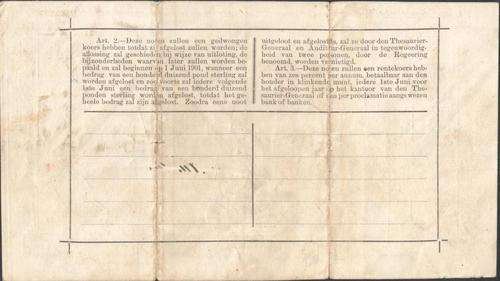 Art. 2.—Deze noten zullen een gedwongen
koers hebben totdat zij afgelost zullen worden; de
aflossing zal geschieden bij wijze van uitloting, de
bijzonderheden waarvan later zullen worden be-
paald en zal beginnen op 1 Juni 1901, wanneer een
bedrag van een honderd duizend pond sterling zal
worden afgelost en zoo vervolgens zal iedere volgende
1ste Juni een bedrag van een honderd duizend
ponden sterling worden afgelost, totdat het ge-
heele bedrag zal zijn afgelost. Zoodra eene noot
uitgeloot en afgelost is, zal ze door den Thesaurier-
Generaal en Auditeur-Generaal in tegenwoordig-
heid van twee personen, door de Regeering
benoemd, worden vernietigd.
Art. 3.—Deze noten zullen een rentekoers heb-
ben van zes percent per annum, betaalbaar aan den
houder in klinkende munt, iedere 1ste Juni voor
het afgeloopen jaar op het kantoor van den The-
saurier-Generaal of aan per proclamatie aangewezen
bank of banken.